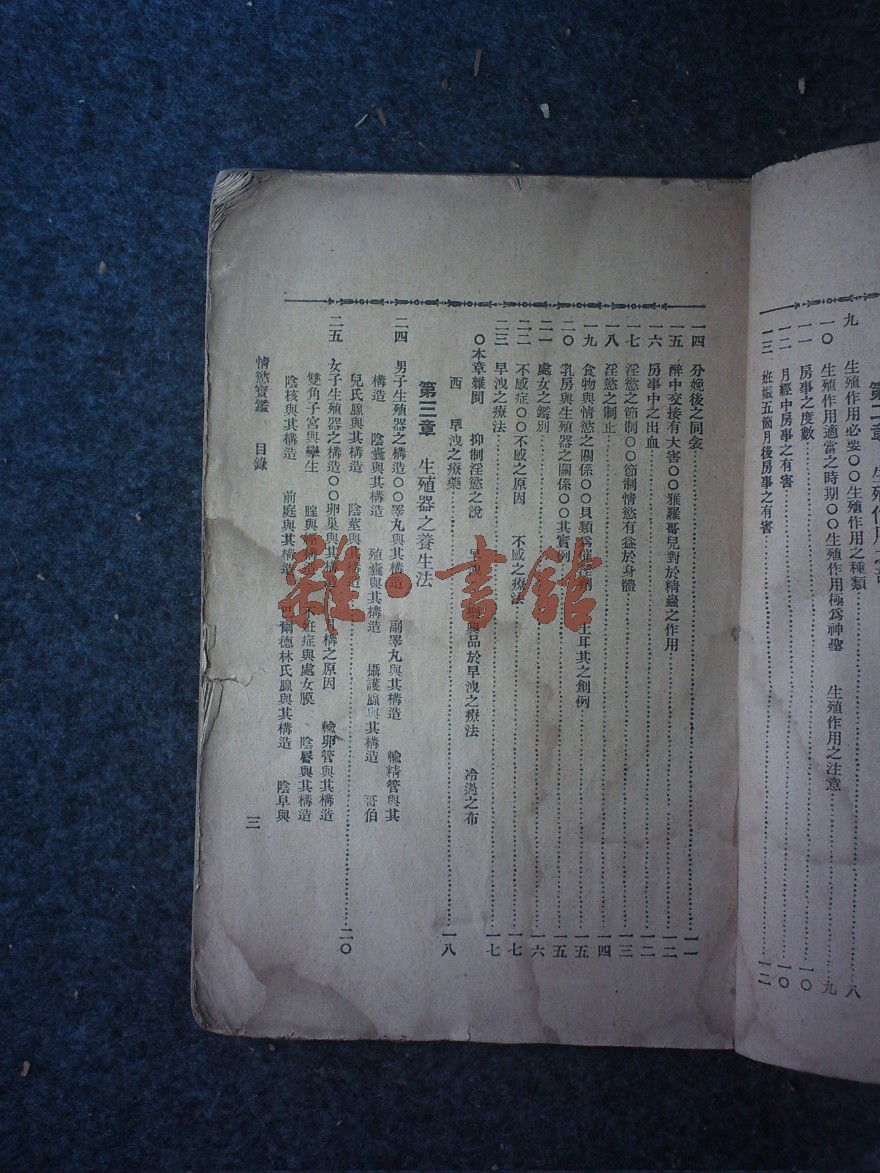 第二章
九 生殖作用必要○○生殖作用之種類 八
一〇 生殖作用適當之時期○○生殖作用極爲神聖 生殖作用之注意 九
一一 房事之度數 一〇
一二 月經中房事之有害 一〇
一三 妊娠五箇月後房事之有害 一二
一四 分娩後之同衾 一一
一五 醉中交接有大害○○雅羅哥兒對於精蟲之作用 一二
一六 房事中之出血 一二
一七 淫慾之節制○○節制情慾有益於身體 一三
一八 淫慾之制止 一四
一九 食物與情慾之關係○○貝類爲催 土耳其之創例 一五
二〇 乳房與生殖器之關係○○其實例 一五
二一 處女之鑑別 一六
二二 不感症○○不感之原因 不感之療法 一七
二三 早洩之療法 一七
○本章雜聞 抑制淫慾之說 早洩 興品於早洩之療法 冷過之布
西 早洩之療藥 一八
第三章 生殖器之養生法
二四 男子生殖器之構造○○睪丸與其構造 副睪丸與其構造 輸精管與其
構造 陰囊與其構造 殖囊與其構造 攝護腺與其構造 哥伯
兒氏腺與其構造 陰莖與其構造 二〇
二五 女子生殖器之構造○○卵巢與其構造 構之原因 輸卵管與其構造
雙角子宮與孿生 腟與其構造 不妊症與處女膜 陰唇與其構造
陰核與其構造 前庭與其構造 巴爾德林氏腺與其構造 陰阜與
情慾寶鑑 目錄 三
雜·書館